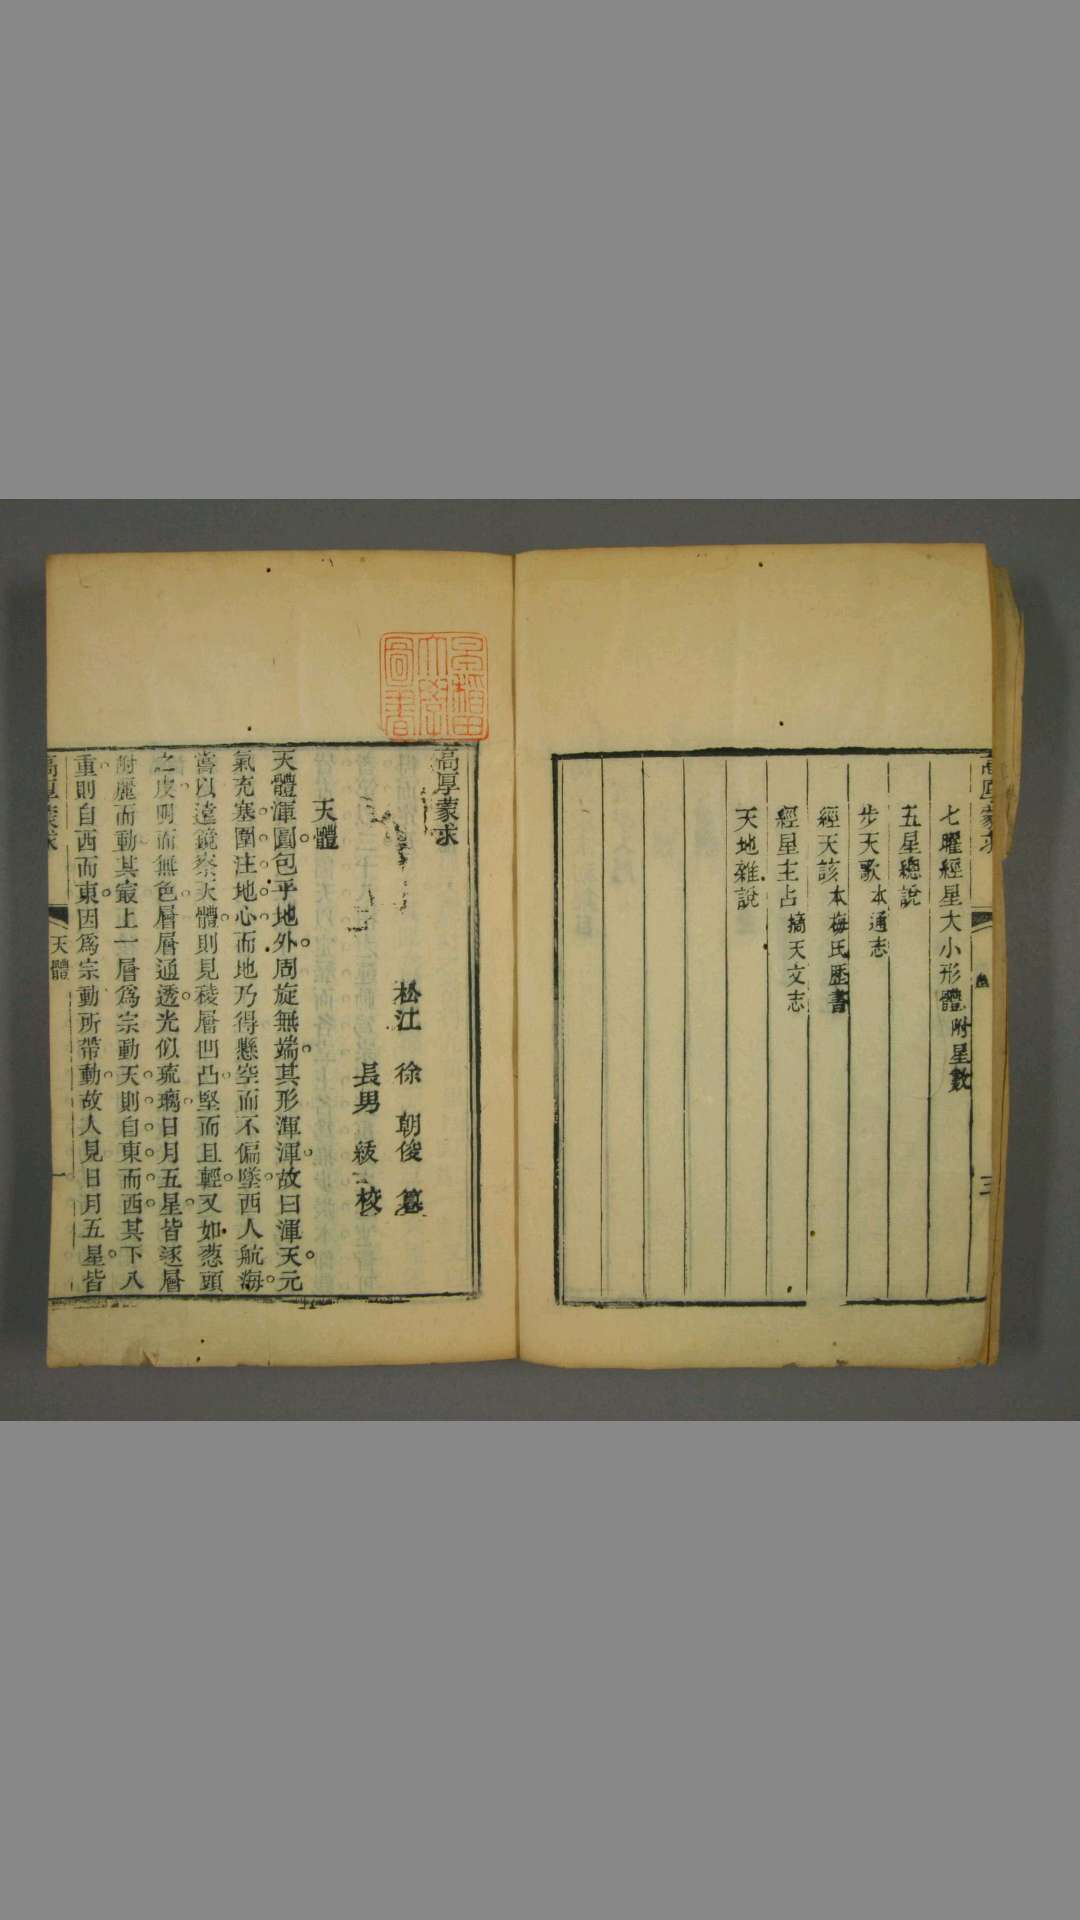 七曜經星大小形體附星數
五星總說
步天歌本通志
經天該本梅氏歷書
經星主占摘天文志
天地雜說
三
早稲田大學圖書
高厚蒙求
松江 徐 朝俊 纂
長男 綾 校
天體
天體渾圓包乎地外周旋無端其形渾渾故曰渾天元
氣充塞圍注地心而地乃得懸空而不偏墜西人航海
嘗以遠鏡察天體則見稜層凹凸堅而且輕又如蔥頭
之皮明而無色層層通透光似琉璃日月五星皆逐層
附麗而動其最上一層為宗動天則自東而西其下八
重則自西而東因為宗動所帶動故人見日月五星皆
高厚蒙求
天體
一